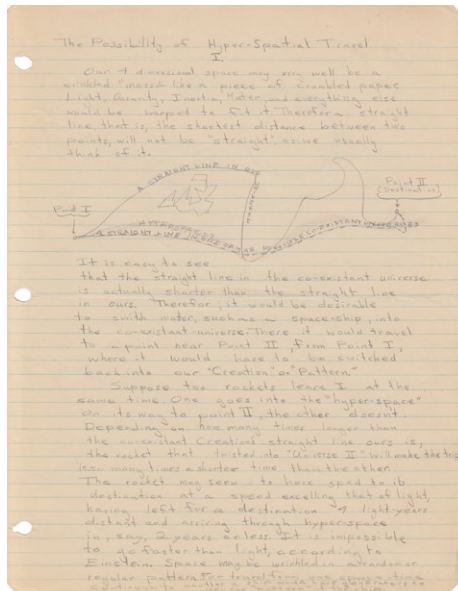 The Possibility of Hyper-Spatial Travel
I.
Our 4 dimensional space may very well be a
wrinkled "mass" like a piece of crumbled paper.
Light, Gravity, Inertia, Mater, and everything else
would be warped to fit it. Therefor a straight
line, that is, the shortest distance between two
points, will not be "straight", as we usually
think of it.
A STRAIGHT LINE IN OUR
Point I
Point II
(Destination)
A STRAIGHT LINE IN
CO-EXISTANT UNIVERSES
It is easy to see
that the straight line in the co-existant universe
is actually shorter than the straight line
in ours. Therefor, it would be desirable
to switch mater, such as a space-ship, into
the co-existant-universe. There it would travel
to a point near Point II, from Point I,
where it would have to be switched
back into our "Creation" or "Pattern."
Suppose two rockets leave I at the
same time. One goes into the "hyper-space"
on its way to point II, the other doesn't.
Depending on how many times longer than
the co-existant Creations straight line ours is,
the rocket that twisted to "Universe II" will make the trip
in so many times a shorter time, than the other
The rocket may seem to have sped to its
destination at a speed excelling that of light,
having left for a destination 4 light-years
distant and arriving through hyper-space
in, say, 2 years or less. It is impossible
to go faster than light, according to
Einstein. Space may be wrinkled in a random or
regular pattern. For one space-time